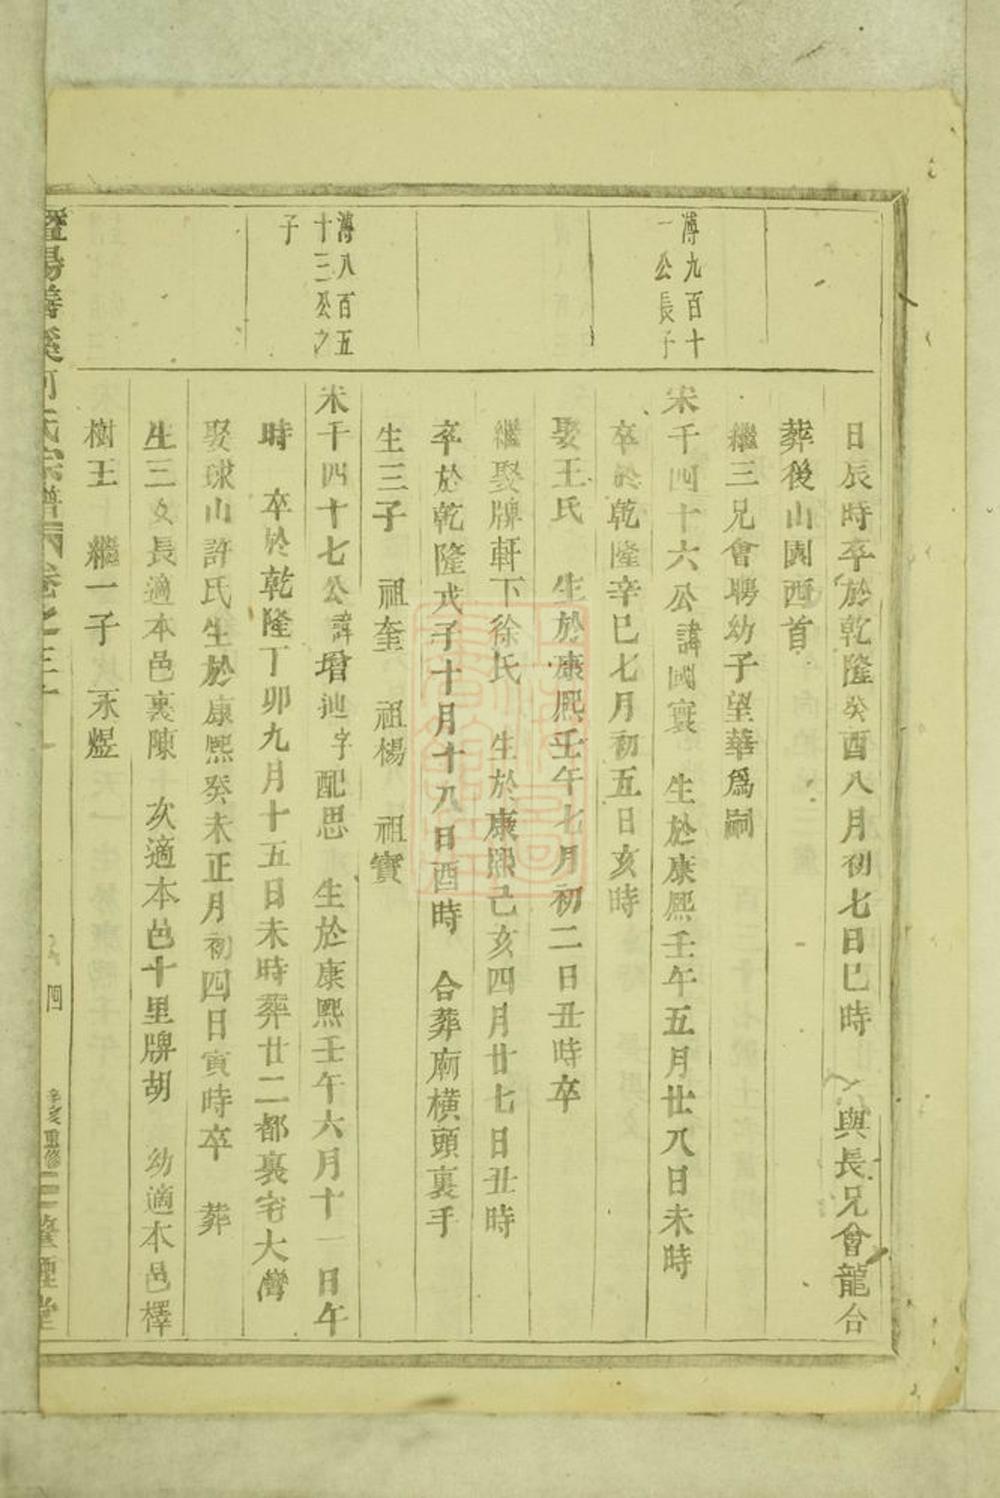 日辰時卒於乾隆癸酉八月初七日巳時 與長兄會龍合
葬後山園西首
繼三兄會聘幼子望華爲嗣
溥九百十
一公長子
宋千四十六公諱國寰 生於康熙壬午五月廿八日未時
卒於乾隆辛巳七月初五日亥時
娶王氏 生於康熙壬午七月初二日丑時卒
繼娶牌軒下徐氏 生於康熙己亥四月廿七日丑時
卒於乾隆戊子十月十八日酉時 合葬廟橫頭裏手
生三子 祖奎 祖楊 祖寶
溥八百五
十三公之
子
宋千四十七公諱增迪字配思 生於康熙壬午六月十一日午
時 卒於乾隆丁卯九月十五日未時葬廿二都裏宅大灣
娶球山許氏生於康熙癸未正月初四日寅時卒 葬
生三女長適本邑裏陳 次適本邑十里牌胡 幼適本邑檡
樹王 繼一子 永煜
暨陽 溪何氏宗譜 卷之三十一
四
辛亥重修
堂